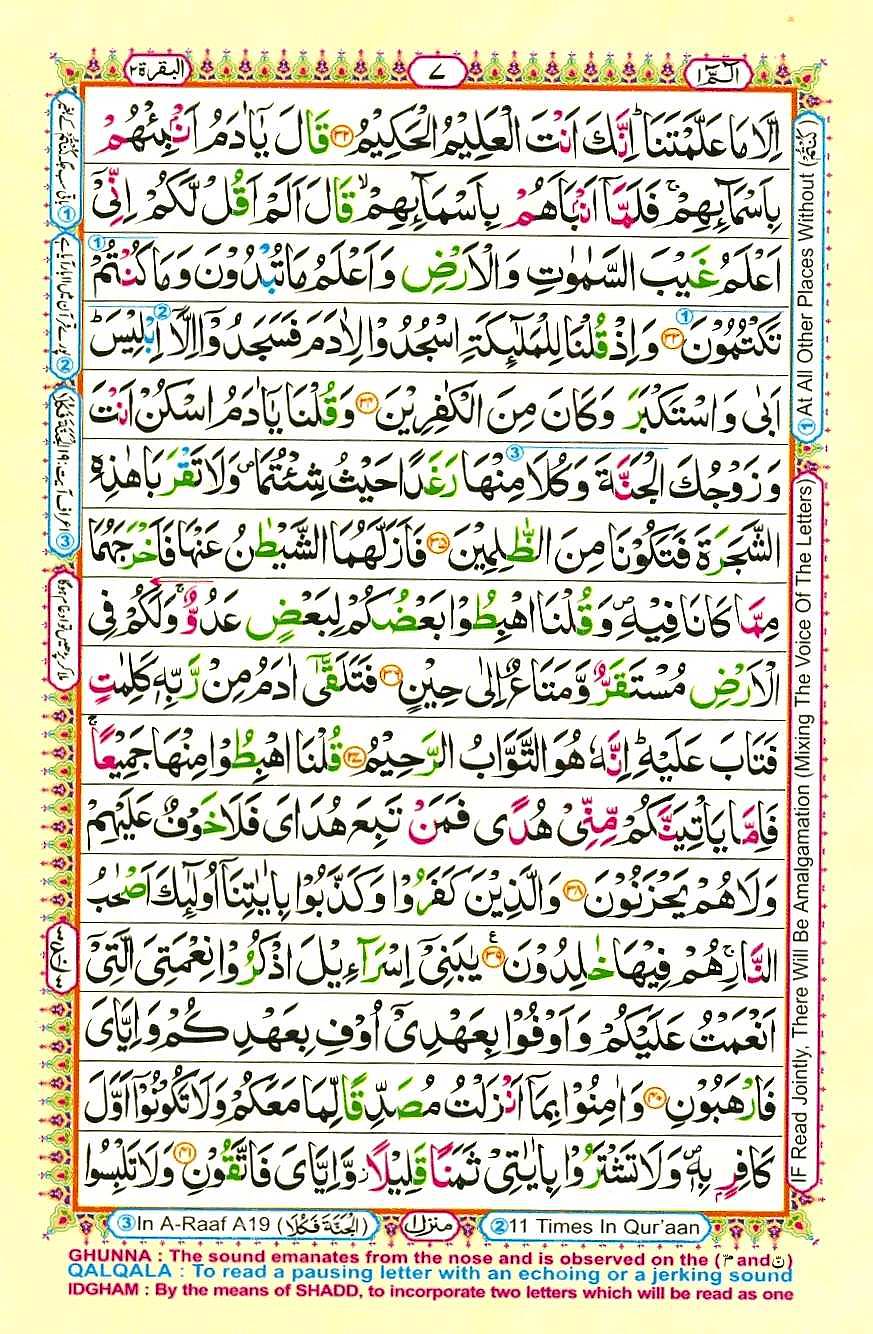 الٓمّٓ ١
٧
البقرة ٢
اِلَّا مَا عَلَّمْتَنَا ؕ اِنَّكَ اَنْتَ الْعَلِیْمُ الْحَكِیْمُ ﴿۳۲﴾ قَالَ یٰۤاٰدَمُ اَنْۢبِئْهُمْ
بِاَسْمَآىِٕهِمْ ۚ فَلَمَّاۤ اَنْۢبَاَهُمْ بِاَسْمَآىِٕهِمْ ۙ قَالَ اَلَمْ اَقُلْ لَّكُمْ اِنِّیْۤ
اَعْلَمُ غَیْبَ السَّمٰوٰتِ وَالْاَرْضِ وَاَعْلَمُ مَا تُبْدُوْنَ وَمَا كُنْتُمْ ①
تَكْتُمُوْنَ ﴿۳۳﴾ ① وَاِذْ قُلْنَا لِلْمَلٰٓىِٕكَةِ اسْجُدُوْا لِاٰدَمَ فَسَجَدُوْۤا اِلَّاۤ اِبْلِیْسَ ؕ ②
اَبٰی وَاسْتَكْبَرَ وَكَانَ مِنَ الْكٰفِرِیْنَ ﴿۳۴﴾ وَقُلْنَا یٰۤاٰدَمُ اسْكُنْ اَنْتَ
وَزَوْجُكَ الْجَنَّةَ وَكُلَا مِنْهَا رَغَدًا حَیْثُ شِئْتُمَا ۪ وَلَا تَقْرَبَا هٰذِهِ ③
الشَّجَرَةَ فَتَكُوْنَا مِنَ الظّٰلِمِیْنَ ﴿۳۵﴾ فَاَزَلَّهُمَا الشَّیْطٰنُ عَنْهَا فَاَخْرَجَهُمَا
مِمَّا كَانَا فِیْهِ ۪ وَقُلْنَا اهْبِطُوْا بَعْضُكُمْ لِبَعْضٍ عَدُوٌّ ۚ وَلَكُمْ فِی
الْاَرْضِ مُسْتَقَرٌّ وَّمَتَاعٌ اِلٰی حِیْنٍ ﴿۳۶﴾ فَتَلَقّٰۤی اٰدَمُ مِنْ رَّبِّهٖ كَلِمٰتٍ
فَتَابَ عَلَیْهِ ؕ اِنَّهٗ هُوَ التَّوَّابُ الرَّحِیْمُ ﴿۳۷﴾ قُلْنَا اهْبِطُوْا مِنْهَا جَمِیْعًا ۚ
فَاِمَّا یَاْتِیَنَّكُمْ مِّنِّیْ هُدًی فَمَنْ تَبِعَ هُدَایَ فَلَا خَوْفٌ عَلَیْهِمْ
وَلَا هُمْ یَحْزَنُوْنَ ﴿۳۸﴾ وَالَّذِیْنَ كَفَرُوْا وَكَذَّبُوْا بِاٰیٰتِنَاۤ اُولٰٓىِٕكَ اَصْحٰبُ
النَّارِ ۚ هُمْ فِیْهَا خٰلِدُوْنَ ﴿۳۹﴾ ع یٰبَنِیْۤ اِسْرَآءِیْلَ اذْكُرُوْا نِعْمَتِیَ الَّتِیْۤ
اَنْعَمْتُ عَلَیْكُمْ وَاَوْفُوْا بِعَهْدِیْۤ اُوْفِ بِعَهْدِكُمْ وَاِیَّایَ
فَارْهَبُوْنِ ﴿۴۰﴾ وَاٰمِنُوْا بِمَاۤ اَنْزَلْتُ مُصَدِّقًا لِّمَا مَعَكُمْ وَلَا تَكُوْنُوْۤا اَوَّلَ
كَافِرٍۭ بِهٖ ۪ وَلَا تَشْتَرُوْا بِاٰیٰتِیْ ثَمَنًا قَلِیْلًا ؗ وَّاِیَّایَ فَاتَّقُوْنِ ﴿۴۱﴾ وَلَا تَلْبِسُوا
① At All Other Places Without (كُنْتُمْ)
IF Read Jointly, There Will Be Amalgamation (Mixing The Voice Of The Letters)
③ اعراف آیت: ١٩ الْجَنَّةَ فَكُلَا
ملا کر پڑھیں تو ادغام ہوگا
③ In A-Raaf A19 (الْجَنَّةَ فَكُلَا)
منزل ١
② 11 Times In Qur'aan
GHUNNA : The sound emanates from the nose and is observed on the (مّ and نّ)
QALQALA : To read a pausing letter with an echoing or a jerking sound
IDGHAM : By the means of SHADD, to incorporate two letters which will be read as one